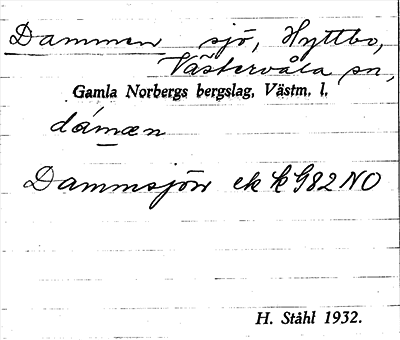 Dammen sjö, Hyttbo,
Västervåla sn,
Gamla Norbergs bergslag, Västm. l.
dámæn
Dammsjön ek k G82 NO
H. Ståhl 1932.